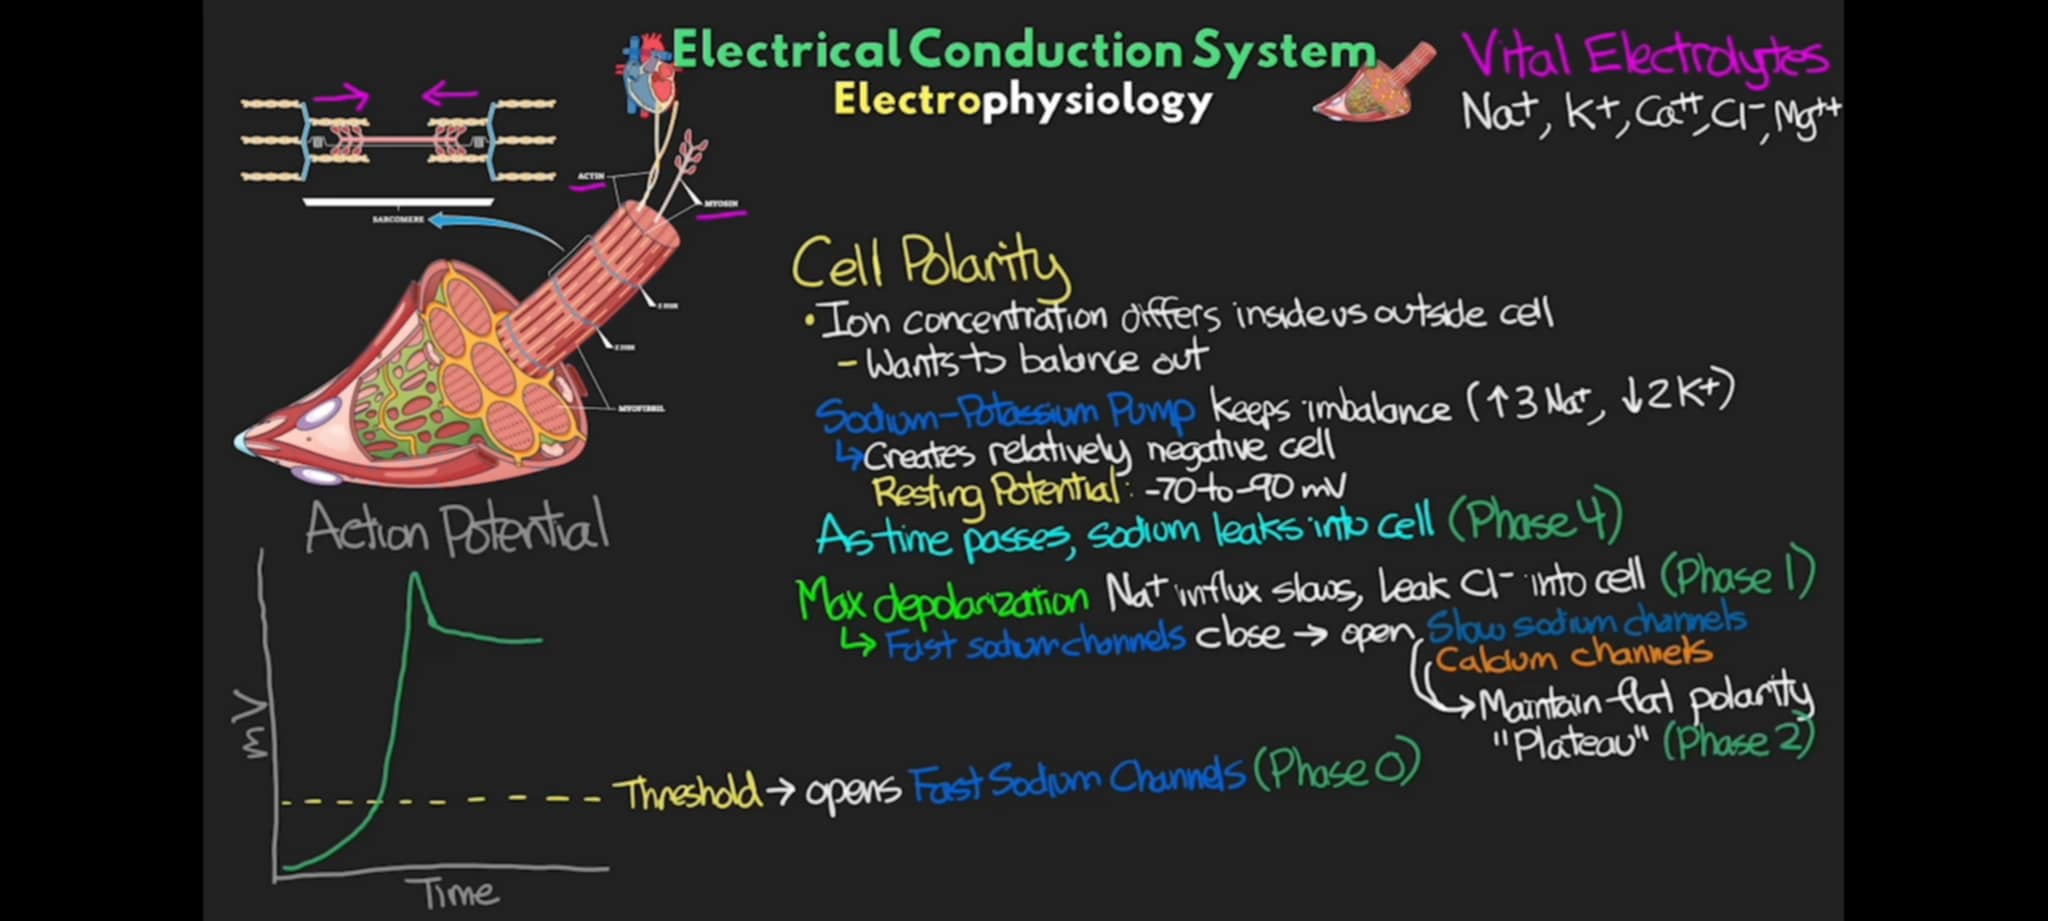 Electrical Conduction System
Electrophysiology
Vital Electrolytes
Na+, K+, Ca++, Cl-, Mg++
ACTIN
MYOSIN
SARCOMERE
Z DISK
Z DISK
MYOFIBRIL
Cell Polarity
• Ion concentration differs inside vs outside cell
- Wants to balance out
Sodium-Potassium Pump keeps imbalance (↑3 Na+, ↓2 K+)
↳ Creates relatively negative cell
Resting Potential: -70 to -90 mV
As time passes, sodium leaks into cell (Phase 4)
Max depolarization Na+ influx slows, Leak Cl- into cell (Phase 1)
↳ Fast sodium channels close → open Slow sodium channels
Calcium channels
→ Maintain flat polarity
"Plateau" (Phase 2)
Threshold → opens Fast Sodium Channels (Phase 0)
Action Potential
mV
Time